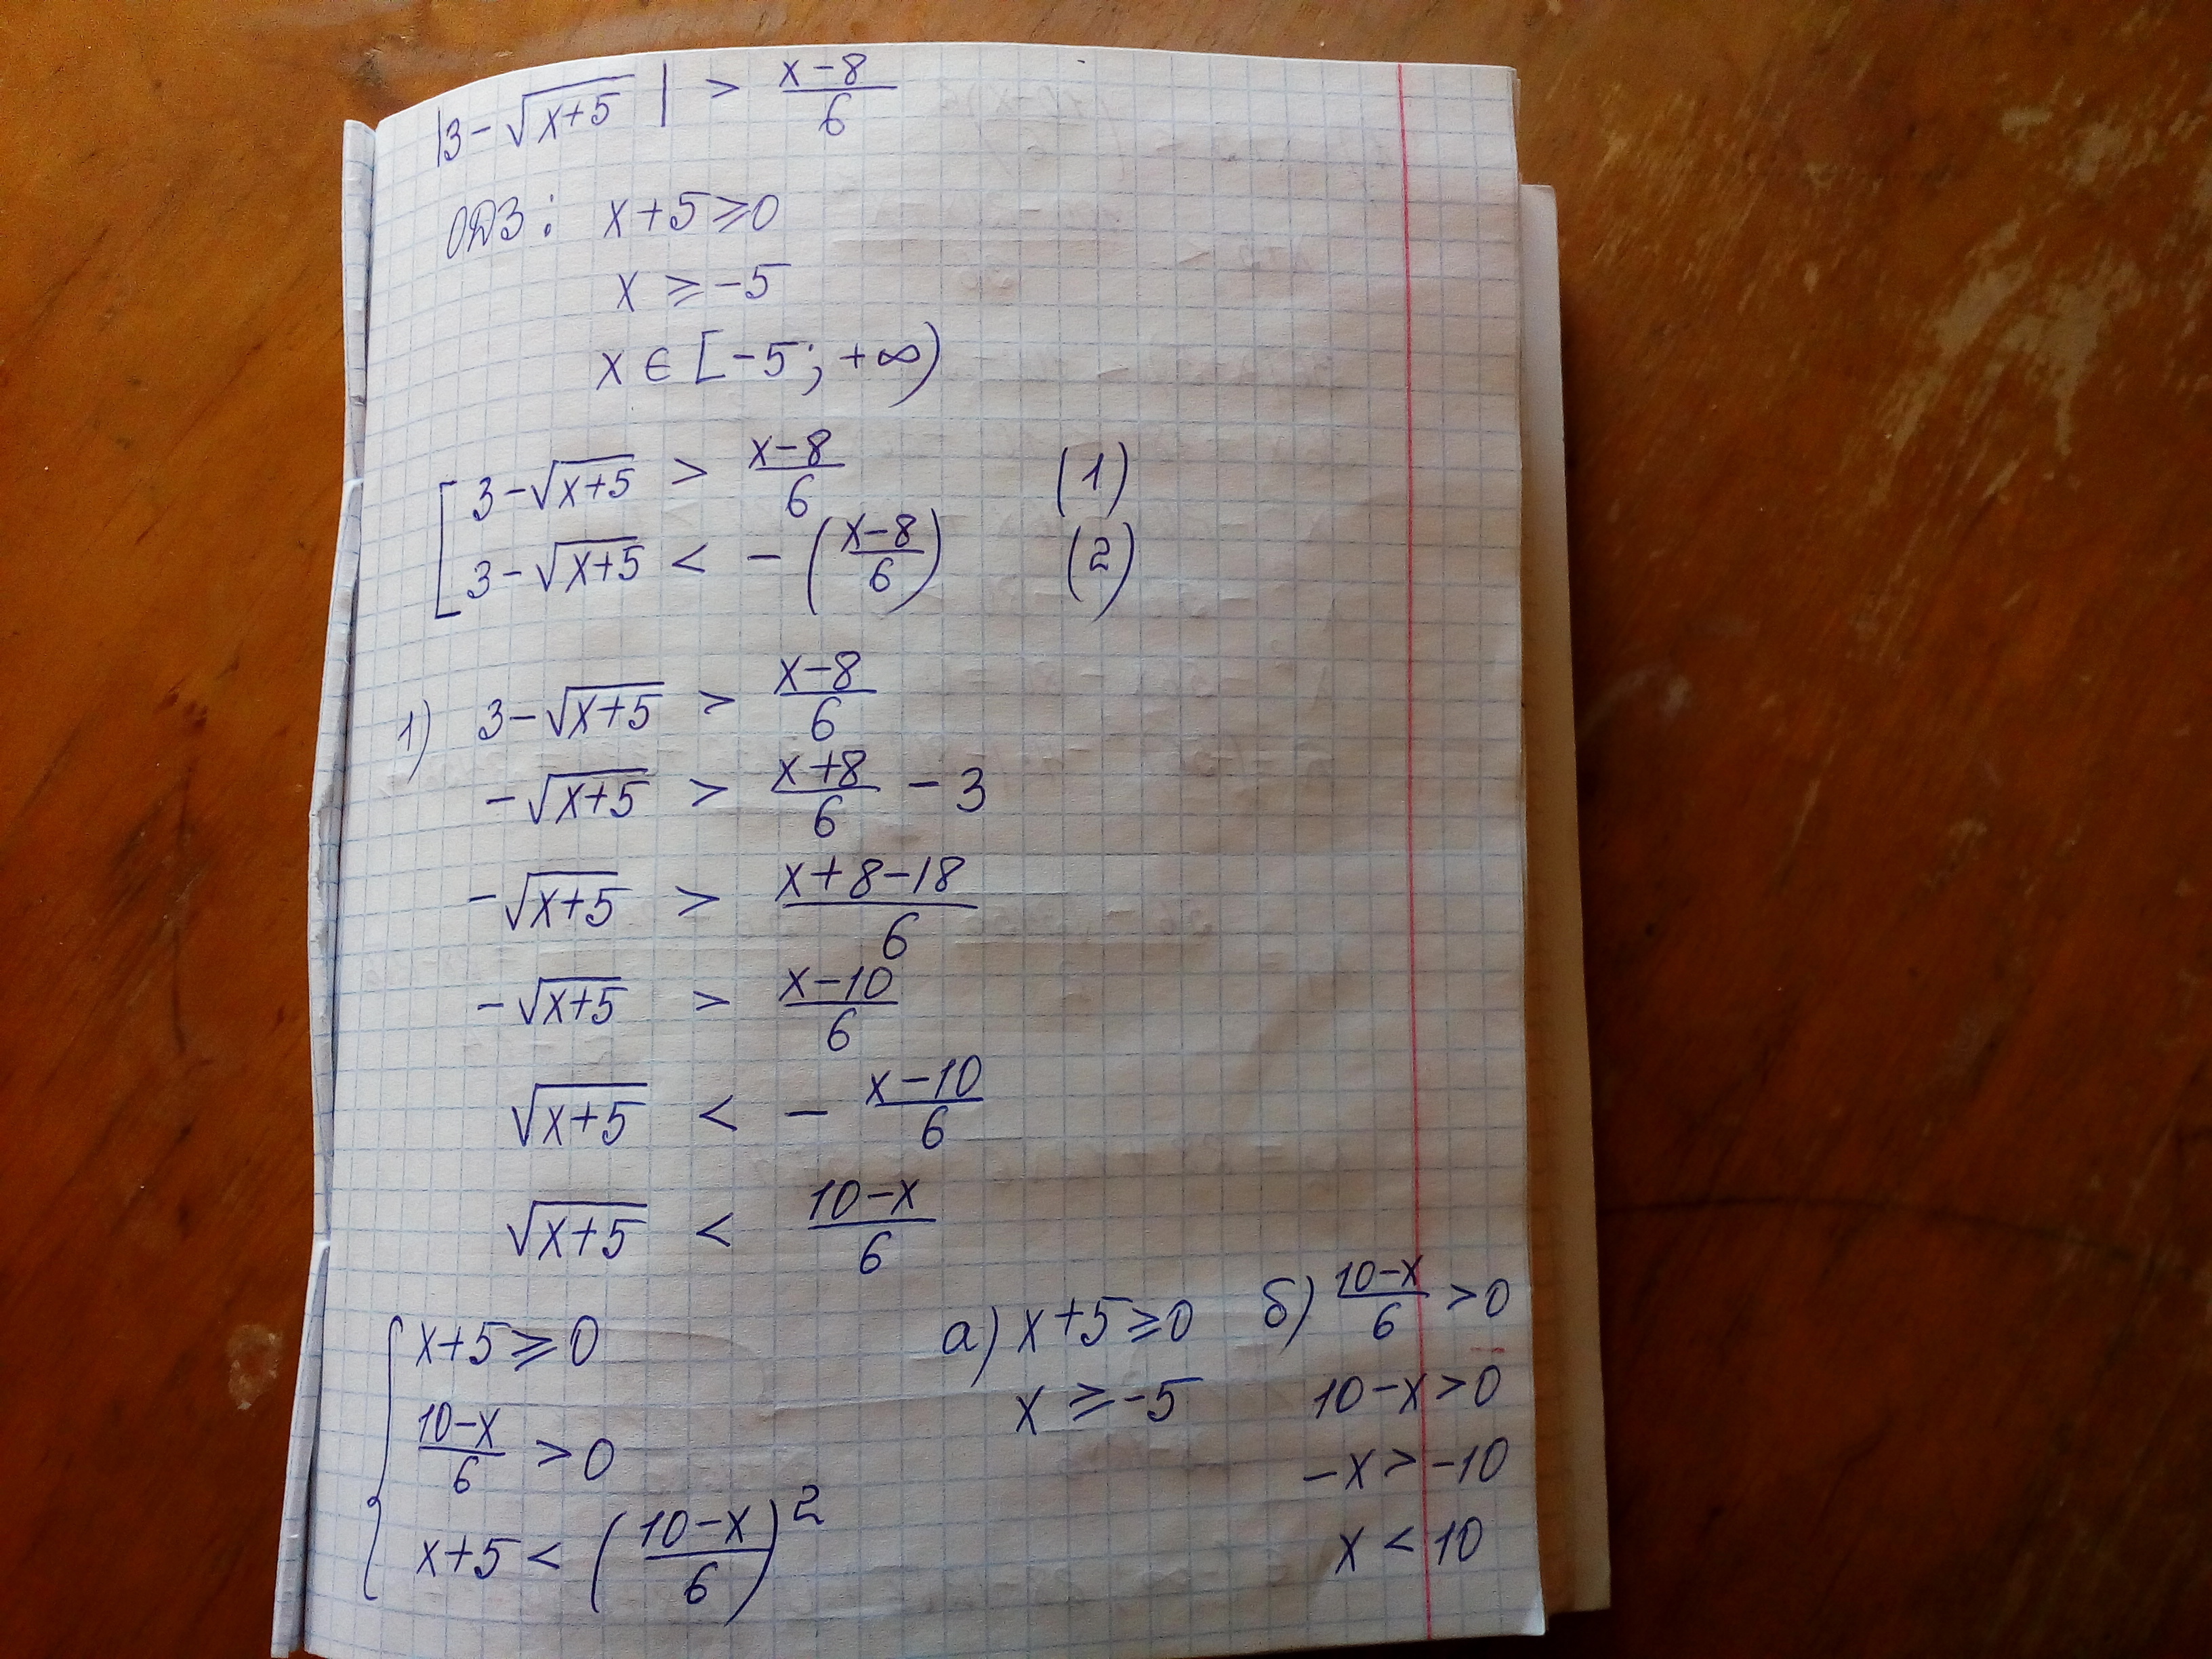 |3-√(x+5)| > (x-8)/6
ОДЗ: x+5≥0
x ≥ -5
x ∈ [-5; +∞)
[ 3-√(x+5) > (x-8)/6 (1)
3-√(x+5) < -((x-8)/6) (2)
1) 3-√(x+5) > (x-8)/6
-√(x+5) > (x+8)/6 - 3
-√(x+5) > (x+8-18)/6
-√(x+5) > (x-10)/6
√(x+5) < - (x-10)/6
√(x+5) < (10-x)/6
{ x+5≥0
(10-x)/6 > 0
x+5 < ((10-x)/6)²
а) x+5≥0
x ≥ -5
б) (10-x)/6 > 0
10-x > 0
-x > -10
x < 10